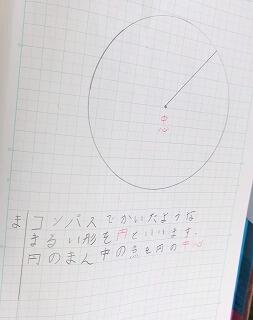 中心
ま コンパスでかいたような
まるい形を円といいます.
円のまん中の点を円の中心